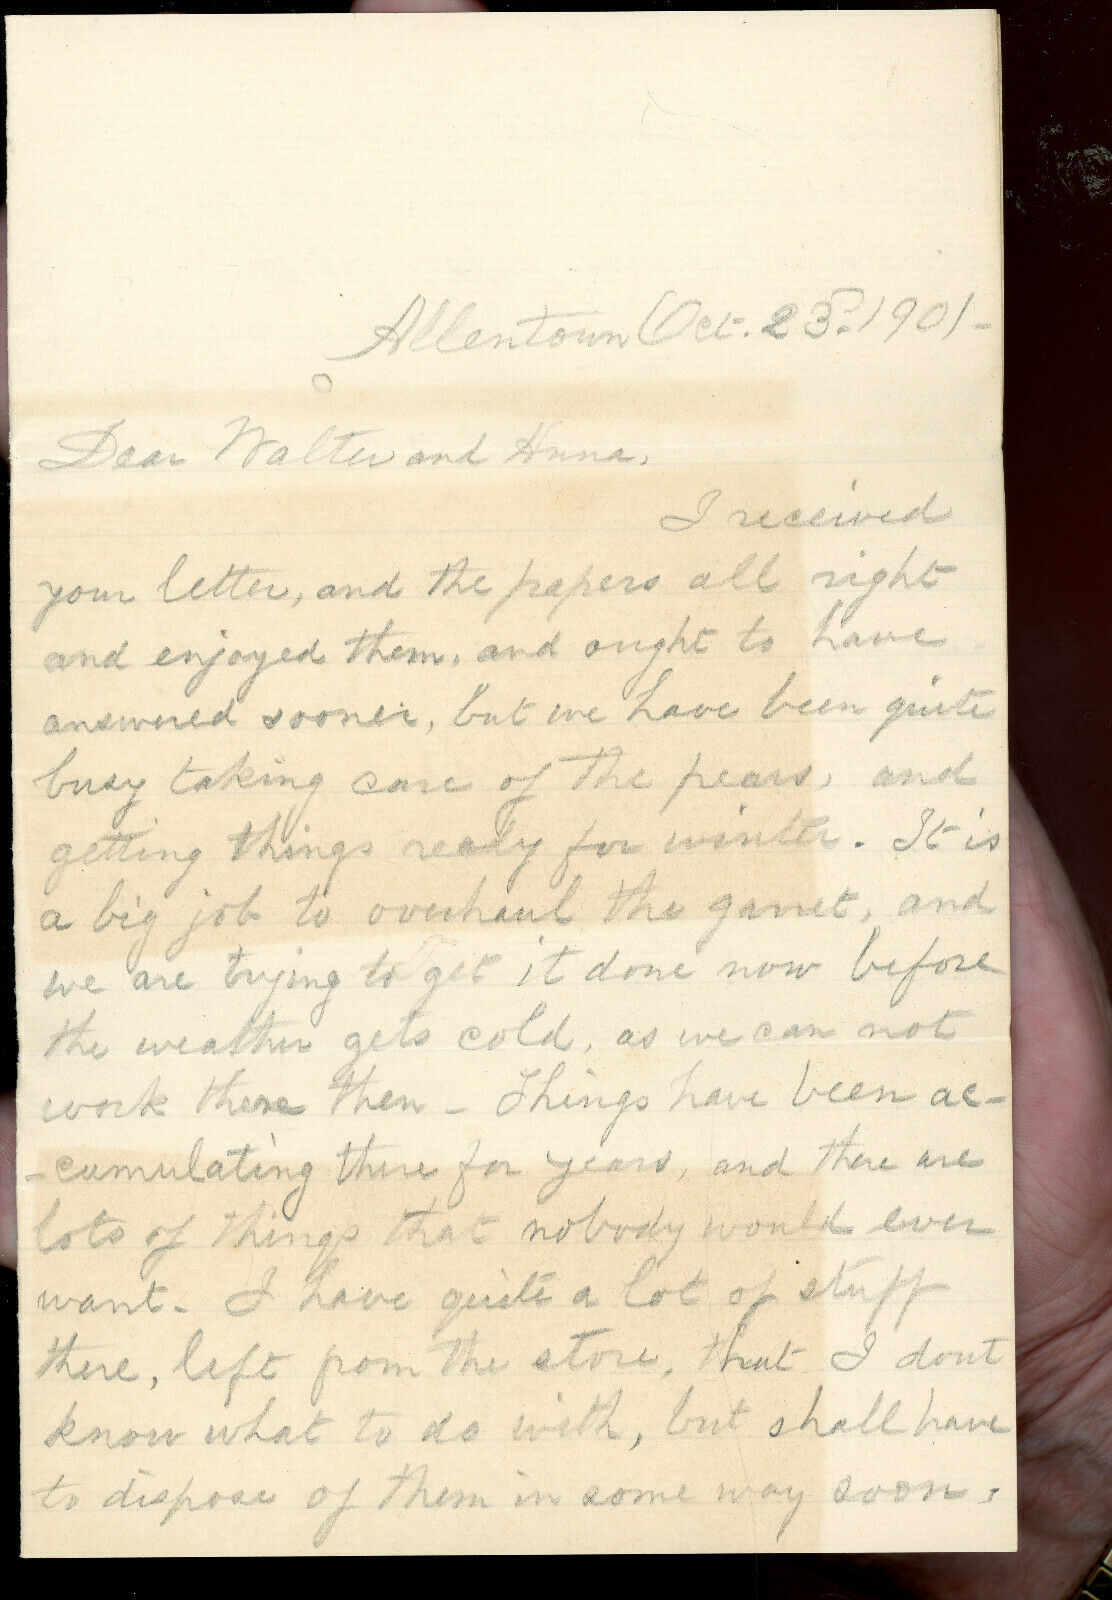 Allentown Oct. 23. 1901-
Dear Walter and Anna,
I received
your letter, and the papers all right
and enjoyed them, and ought to have
answered sooner, but we have been quite
busy taking care of the pears, and
getting things ready for winter. It is
a big job to overhaul the garret, and
we are trying to get it done now before
the weather gets cold, as we can not
work there then - Things have been ac-
-cumulating there for years, and there are
lots of things that nobody would ever
want - I have quite a lot of stuff
there, left from the store, that I dont
know what to do with, but shall have
to dispose of them in some way soon.